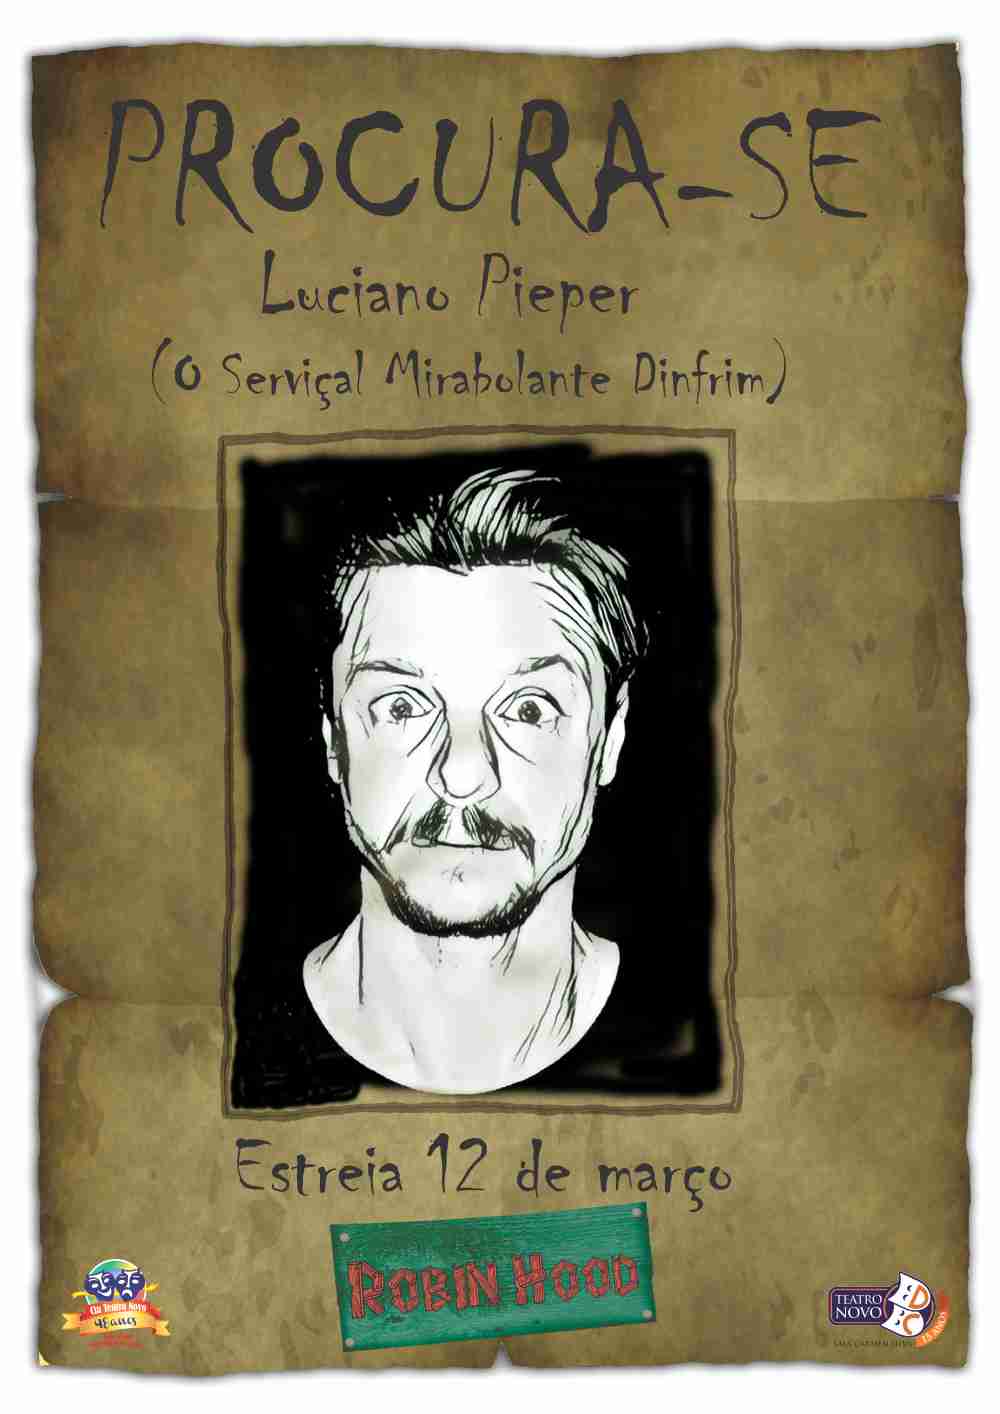 PROCURA-SE
Luciano Pieper
(O Serviçal Mirabolante Dinfrim)
Estreia 12 de março
ROBIN HOOD
Cia Teatro Novo
48 anos
TEATRO
NOVO
DC
15 ANOS